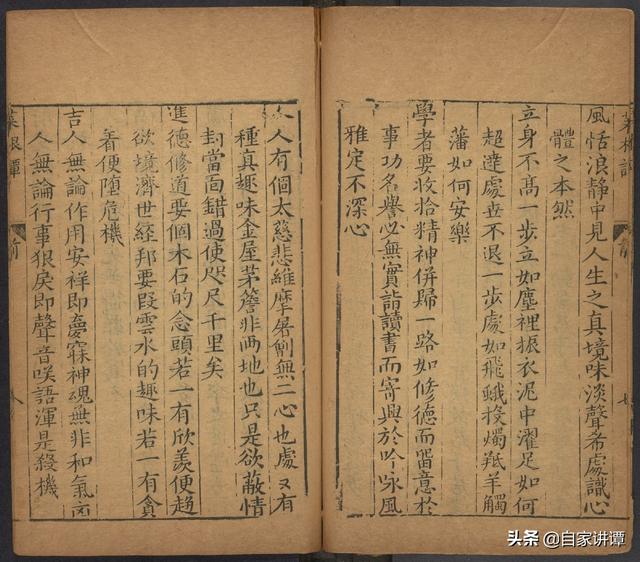 菜根譚
前
七
風恬浪靜中見人生之真境味淡聲希處識心
體之本然
立身不高一步立如塵裡振衣泥中濯足如何
超達處世不退一步處如飛蛾投燭羝羊觸
藩如何安樂
學者要收拾精神併歸一路如修德而留意於
事功名譽必無實詣讀書而寄興於吟咏風
雅定不深心
人人有個太慈悲維摩屠劊無二心也處又有
種真趣味金屋茅簷非兩地也只是欲蔽情
封當面錯過使咫尺千里矣
進德修道要個木石的念頭若一有欣羨便趨
欲境濟世經邦要段雲水的趣味若一有貪
着便墮危機
吉人無論作用安祥即夢寐神魂無非和氣凶
人無論行事狠戾即聲音咲語渾是殺機
菜根譚
前
八
头条 @自家讲谭